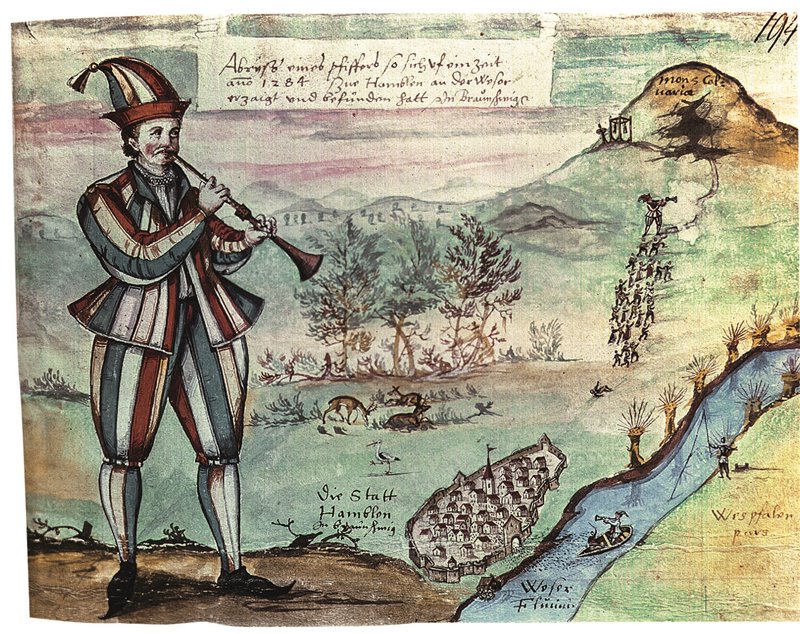 194
Abryß eines pfiffers so sich uf ein Zeit
año 1284 Zue Hamblen an der Weser
erzaigt und befunden hatt In Braunschwig
mons Cal-
varia
Die Statt
Hamblen
In braunschwig
Wespfalen
pars
Weser
Fluuiu